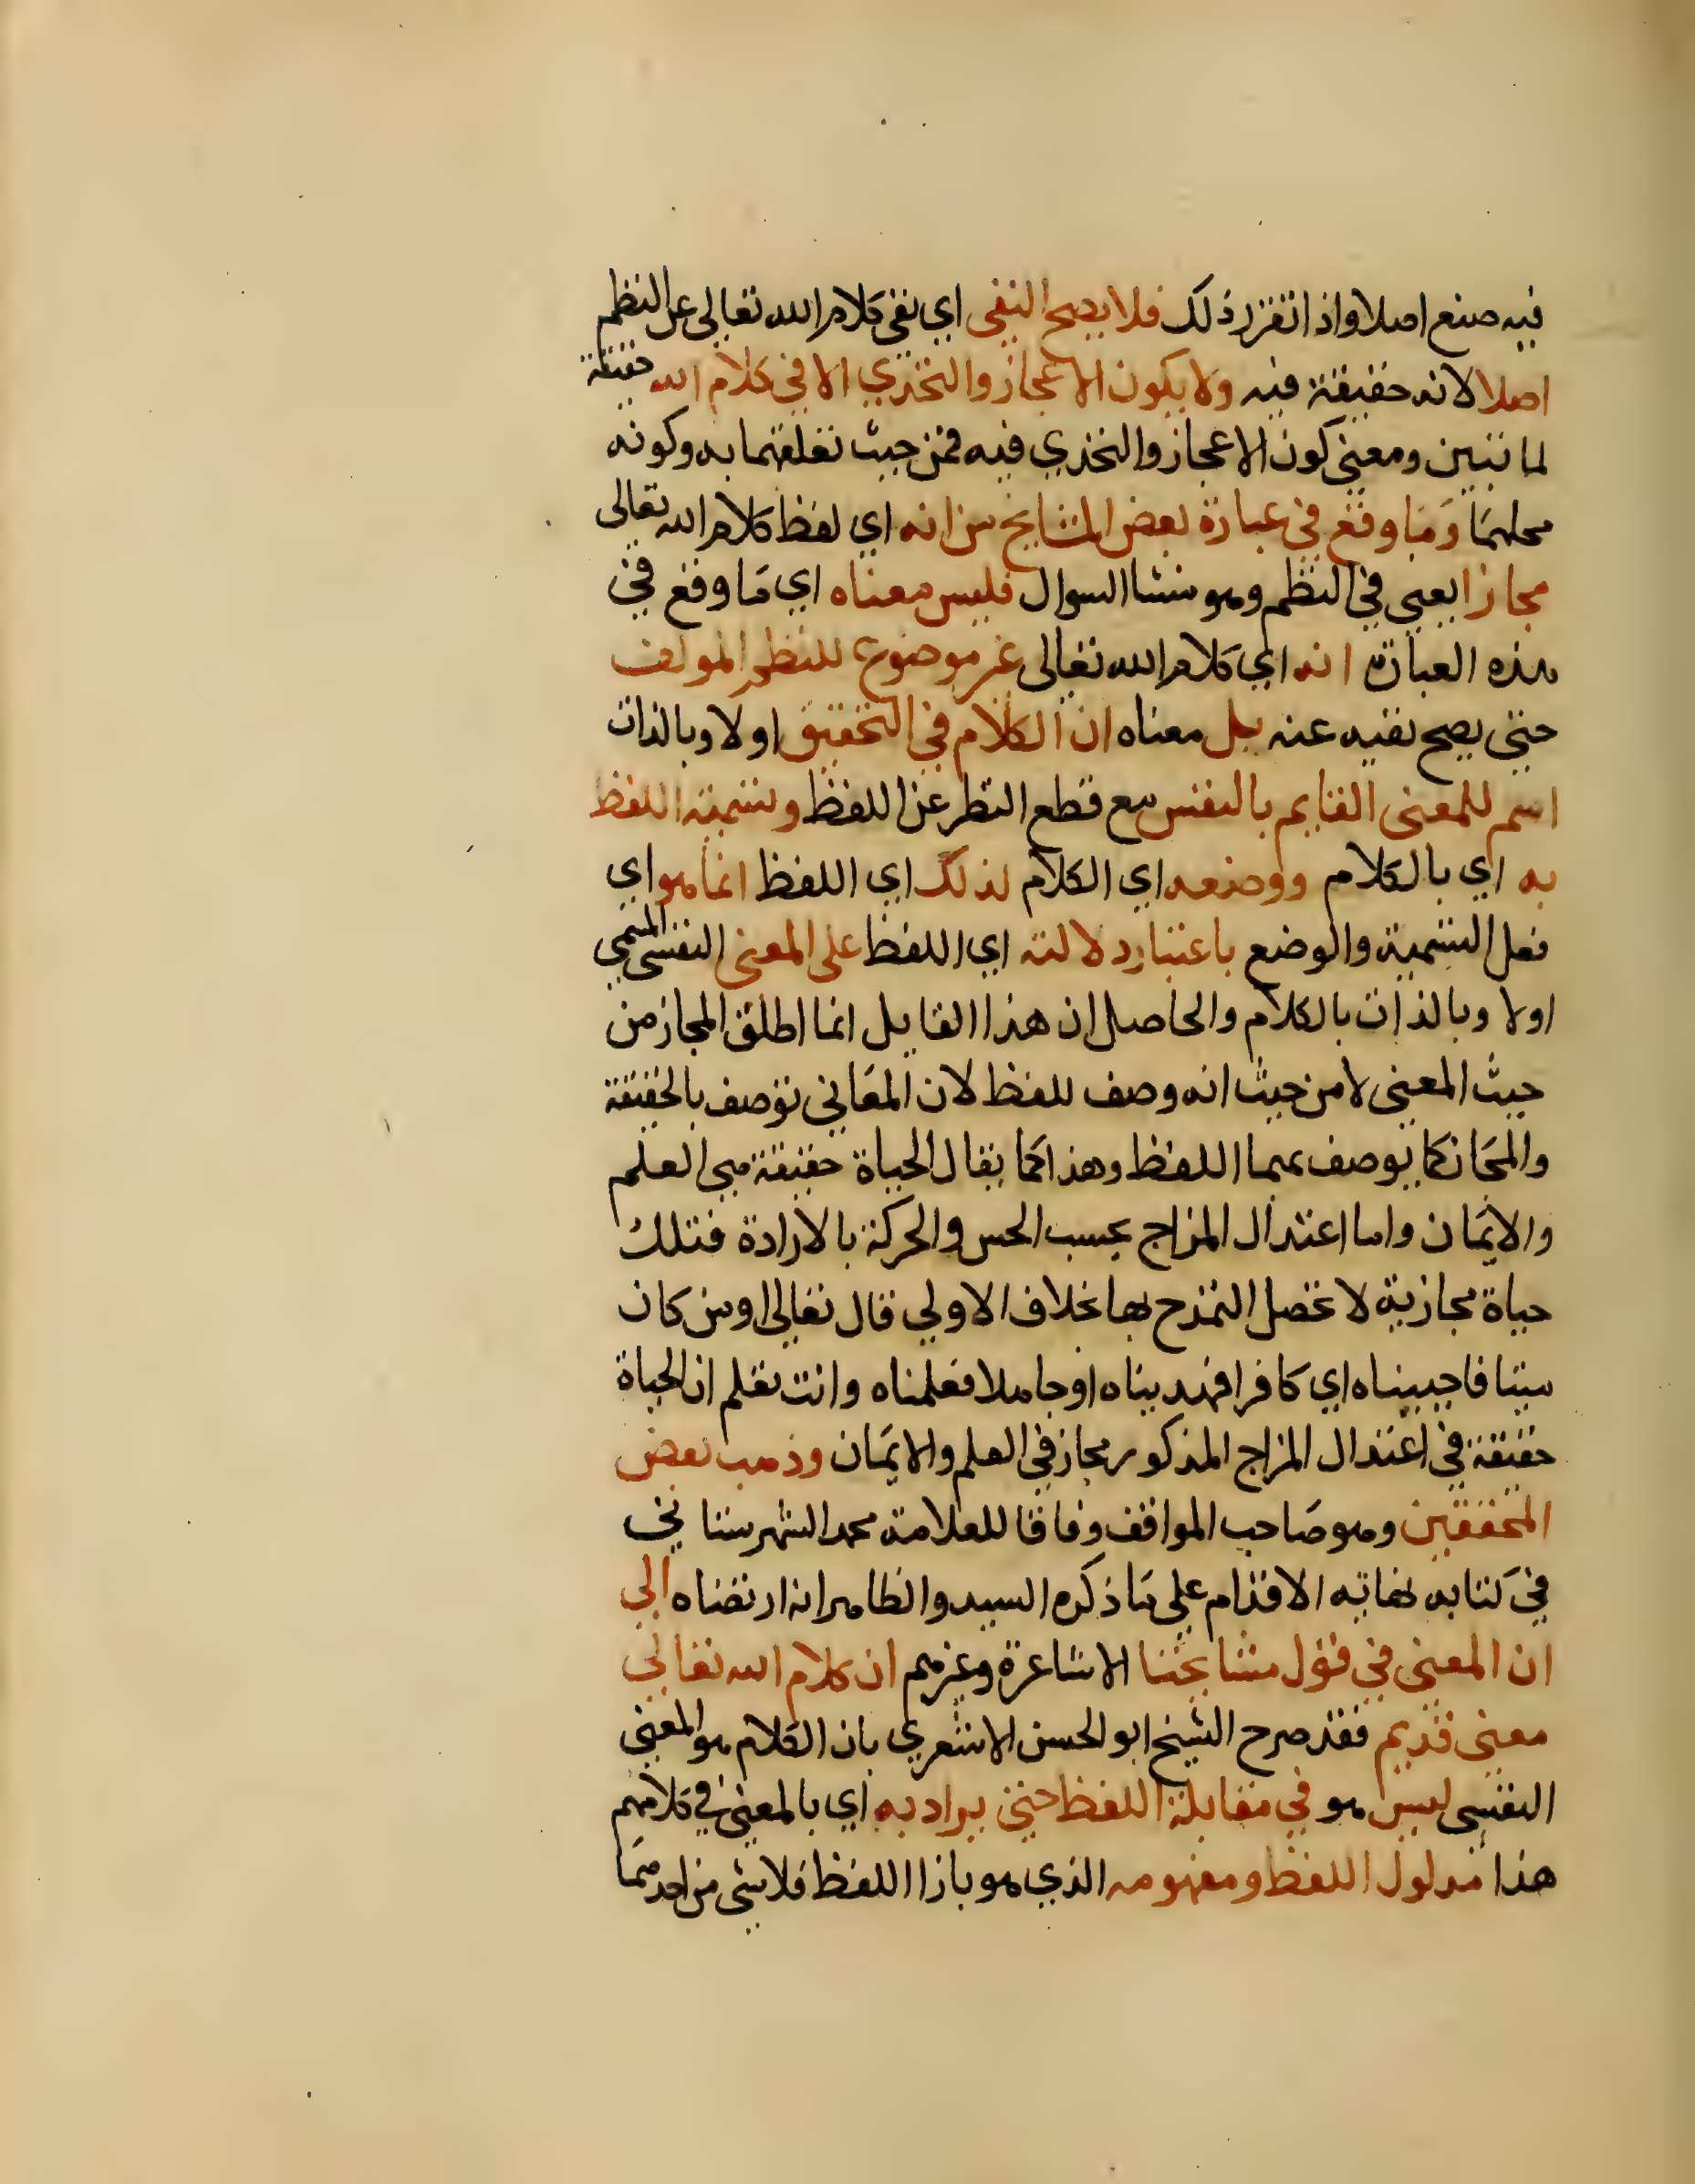 فيه صنع اصلا واذا تقرر ذلك فلا يصح النفي اي نفي كلام الله تعالى عن النظم
اصلا لانه حقيقة فيه ولا يكون الاعجاز والتحدي الا في كلام الله حقيقة
لما تبين ومعنى كون الاعجاز والتحدي فيه فمن حيث تعلقهما به وكونه
محلهما وما وقع في عبارة بعض المشايخ من انه اي لفظ كلام الله تعالى
مجاز ايعني في النظم وهو منشا السوال فليس معناه اي ما وقع في
هذه العبارة انه اي كلام الله تعالى غير موضوع للنظم المولف
حتى يصح نفيه عنه بل معناه ان الكلام في التحقيق اولا وبالذات
اسم للمعنى القايم بالنفس مع قطع النظر عن اللفظ وتسمية اللفظ
به اي بالكلام ووضعه اي الكلام لذلك اي اللفظ انما هو اي
فعل التسمية والوضع باعتبار دلالته اي اللفظ على المعنى النفسي المسمى
اولا وبالذات بالكلام والحاصل ان هذا القايل انما اطلق المجاز من
حيث المعنى لا من حيث انه وصف للفظ لان المعاني توصف بالحقيقة
والمجاز كما يوصف بهما اللفظ وهذا كما يقال الحياة حقيقة هي العلم
والايمان واما اعتدال المزاج بحسب الحس والحركة بالارادة فتلك
حياة مجازية لا تحصل التمدح بها بخلاف الاولي قال تعالى اومن كان
ميتا فاحييناه اي كافرا فهديناه اوجاهلا فعلمناه وانت تعلم ان الحياة
حقيقة في اعتدال المزاج المذكور مجاز في العلم والايمان وذهب بعض
المحققين وهو صاحب المواقف وفاقا للعلامة محمد الشهرستاني
في كتابه نهاية الاقدام علي ما ذكره السيد والظاهر انه ارتضاه الي
ان المعنى في قول مشايخنا الاشاعرة وغيرهم ان كلام الله تعالي
معنى قديم فقد صرح الشيخ ابو الحسن الاشعري بان الكلام هو المعنى
النفسي ليس هو في مقابلة اللفظ حتى يراد به اي بالمعنى في كلامهم
هذا مدلول اللفظ ومفهومه الذي هو بازا اللفظ فلا شي من احدهما